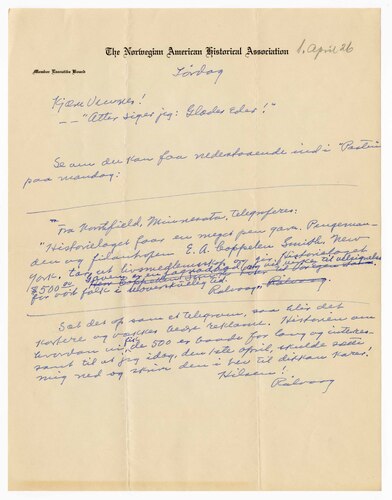 The Norwegian American Historical Association
1. April 26
Member Executive Board
Lördag
Kjære Veumes!
-- "Atter siger jeg: Glæder Eder!"
Se om du kan faa nedenstaaende ind i "Posten"
paa mandag:
Fra Northfield, Minnesota, telegraferes:
"Historielaget faar en meget pen gave. Pengeman-
den og filantropen E. A. Cappelen Smith, New
York, tar et livsmedlemskap og gir Historielaget
$500
for vort folk i
Rølvaag. Rølvaag.
Sæt det op som et telegram, saa blir det
kortere og vækker bedre reklame. Historien om
hvordan vi fik de 500 er baade for lang og interes-
sant til at jeg idag, den 1ste april, skulde sætte
mig ned og skrive den i brev til dikkan karer!
Hilsen!
Rølvaag